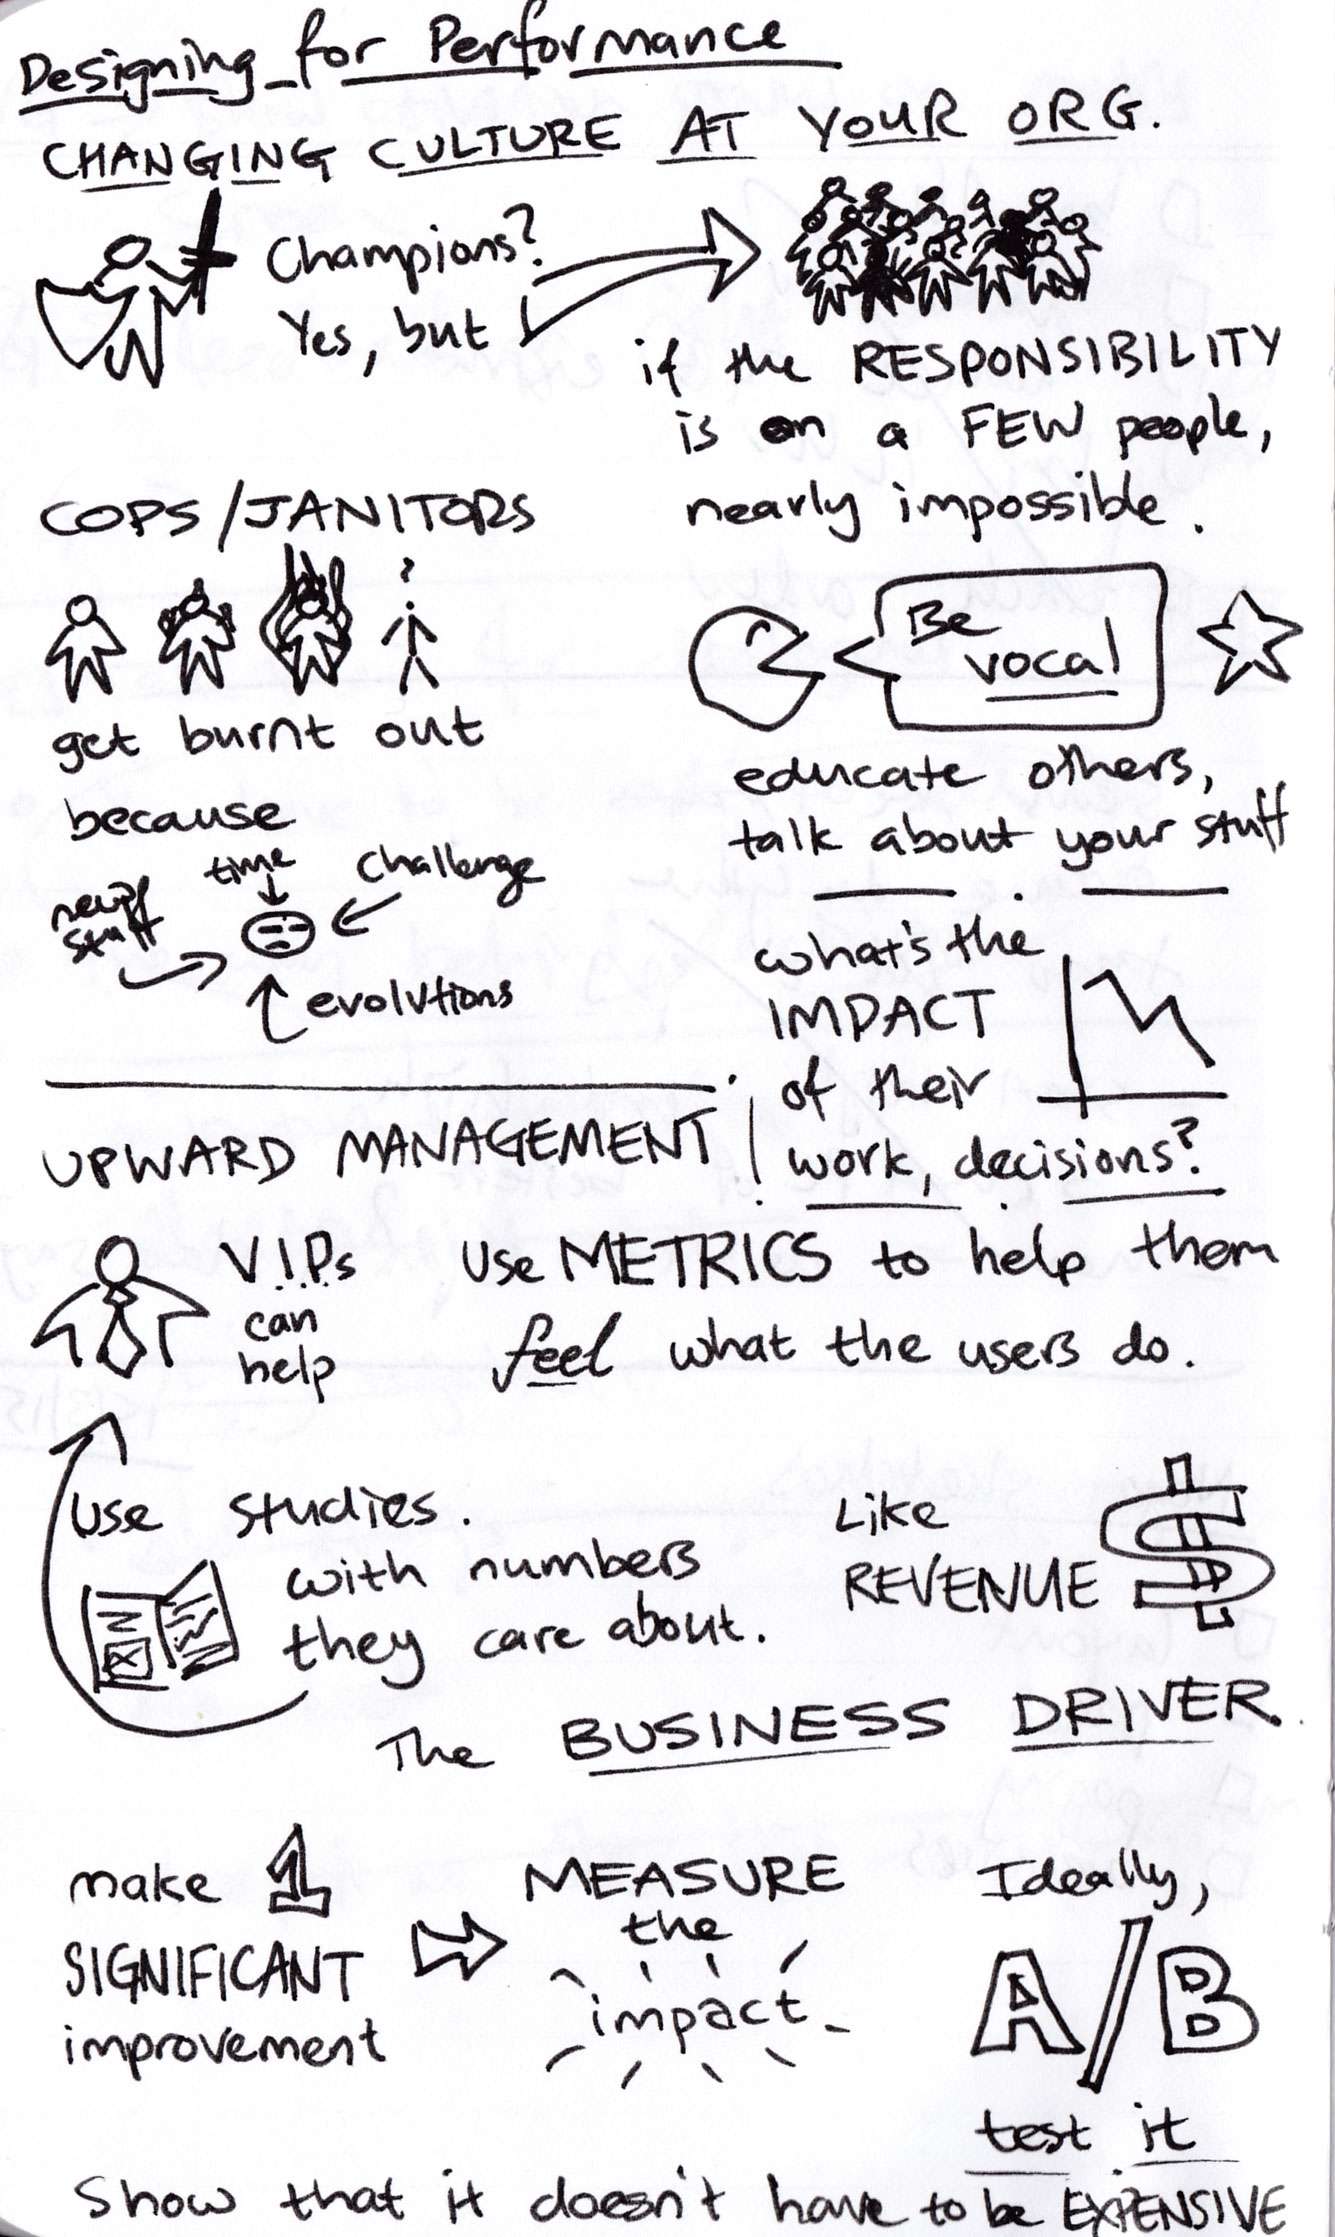 Designing for Performance
CHANGING CULTURE AT YOUR ORG.
Champions?
Yes, but
if the RESPONSIBILITY
is on a FEW people,
nearly impossible.
COPS/JANITORS
?
get burnt out
because
time
challenge
stuff
evolutions
Be
vocal
educate others,
talk about your stuff
what's the
IMPACT
of their
work, decisions?
UPWARD MANAGEMENT!
V.I.Ps
can
help
use METRICS to help them
feel what the users do.
use studies.
with numbers
they care about.
Like
REVENUE $
The BUSINESS DRIVER.
make 1
SIGNIFICANT
improvement
MEASURE
the
impact
Ideally,
A/B
test it
Show that it doesn't have to be EXPENSIVE